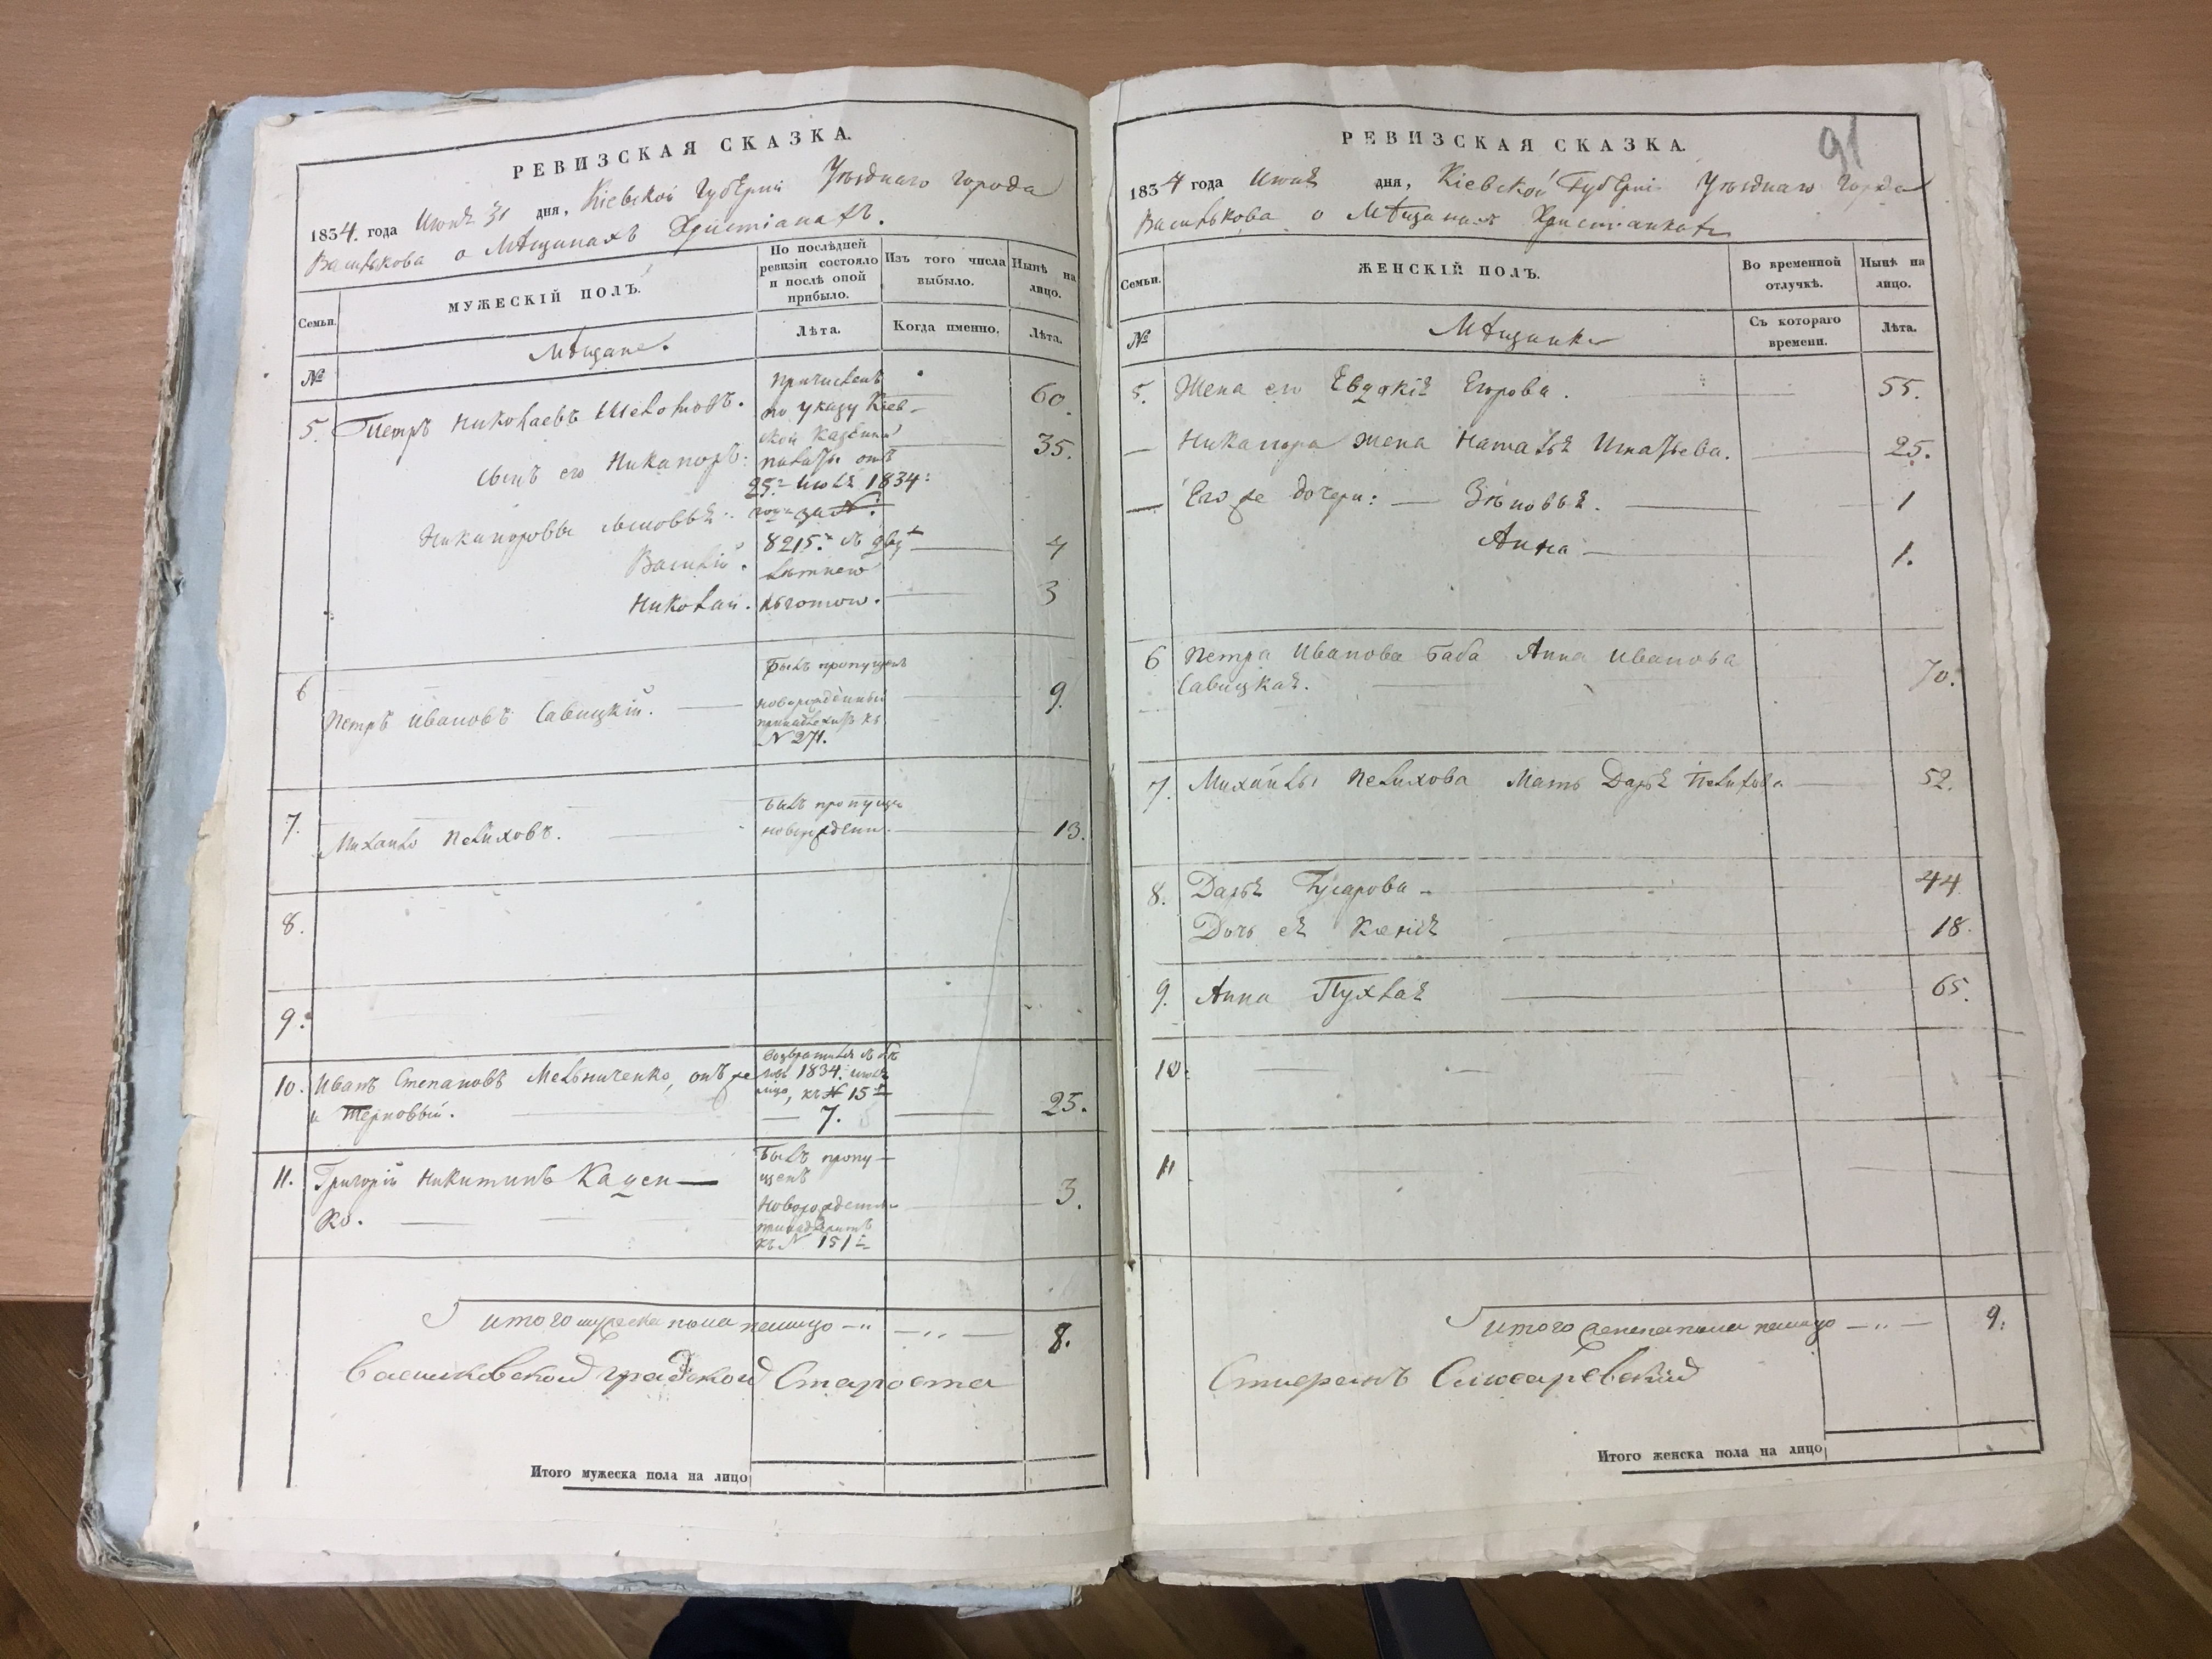 РЕВИЗСКАЯ СКАЗКА.
1834. года Июля 31 дня, Кіевской Губерніи Уѣзднаго города
Василькова о Мѣщанахъ Христіанахъ.
Семьи.
МУЖЕСКІЙ ПОЛЪ.
По послѣдней ревизіи состояло и послѣ оной прибыло.
Изъ того числа выбыло.
Нынѣ на лицо.
№
Мѣщане.
Лѣта.
Когда именно.
Лѣта.
5. Петръ Николаевъ 60.
причисленъ
по указу Кіев-
ской Казенной
палаты отъ
25.го Июля 1834:
года за №.
8215.мъ съ двух
лѣтнею
льготою.
сынъ его Никаноръ: 35.
Никаноровы сыновья:
Василій. 4
Николай. 3
6 Петръ Ивановъ Савицкій. 9.
Былъ пропущенъ
новорожденный
принадлежитъ къ
№ 271.
7. Михайло Пелиховъ. 13.
былъ пропущен
новорожден.
8.
9.
10. Иванъ Степановъ Мельниченко, онъ же
и Терновый. 25.
1834. июля
къ № 15
7.
11. Григорій Никитинъ Кацен-
ко. 3.
Былъ пропу-
щенъ
новорожден
принадлежитъ
къ № 151
Итого мужеска пола налицо 8.
Васильковской градской Староста
Итого мужеска пола на лицо
РЕВИЗСКАЯ СКАЗКА.
91
1834 года Июля дня, Кіевской Губерніи Уѣзднаго Города
Василькова о Мѣщанкахъ Христіанкахъ
Семьи.
ЖЕНСКІЙ ПОЛЪ.
Во временной отлучкѣ.
Нынѣ на лицо.
№
Мѣщанки
Съ котораго времени.
Лѣта.
5. Жена его Евдокія Егорова. 55.
Никанора жена Наталья Игнатьева. 25.
Его же дочери: Зѣновья. 1
Анна 1.
6 Петра Иванова баба Анна Иванова
Савицкая. 70.
7. Михайлы Пелихова Мать Дарья Пелихова 52.
8. Дарья Гусарова 44
Дочь ея Ксенія 18.
9. Анна Пухлая 65.
10.
11
Итого женска пола налицо 9.
Слюсаревский
Итого женска пола на лицо